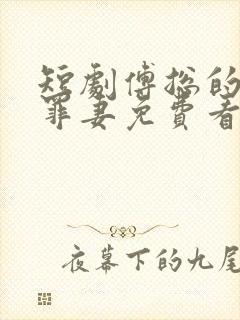 短劇傅総的
罪妻免費看
夜幕下的九尾